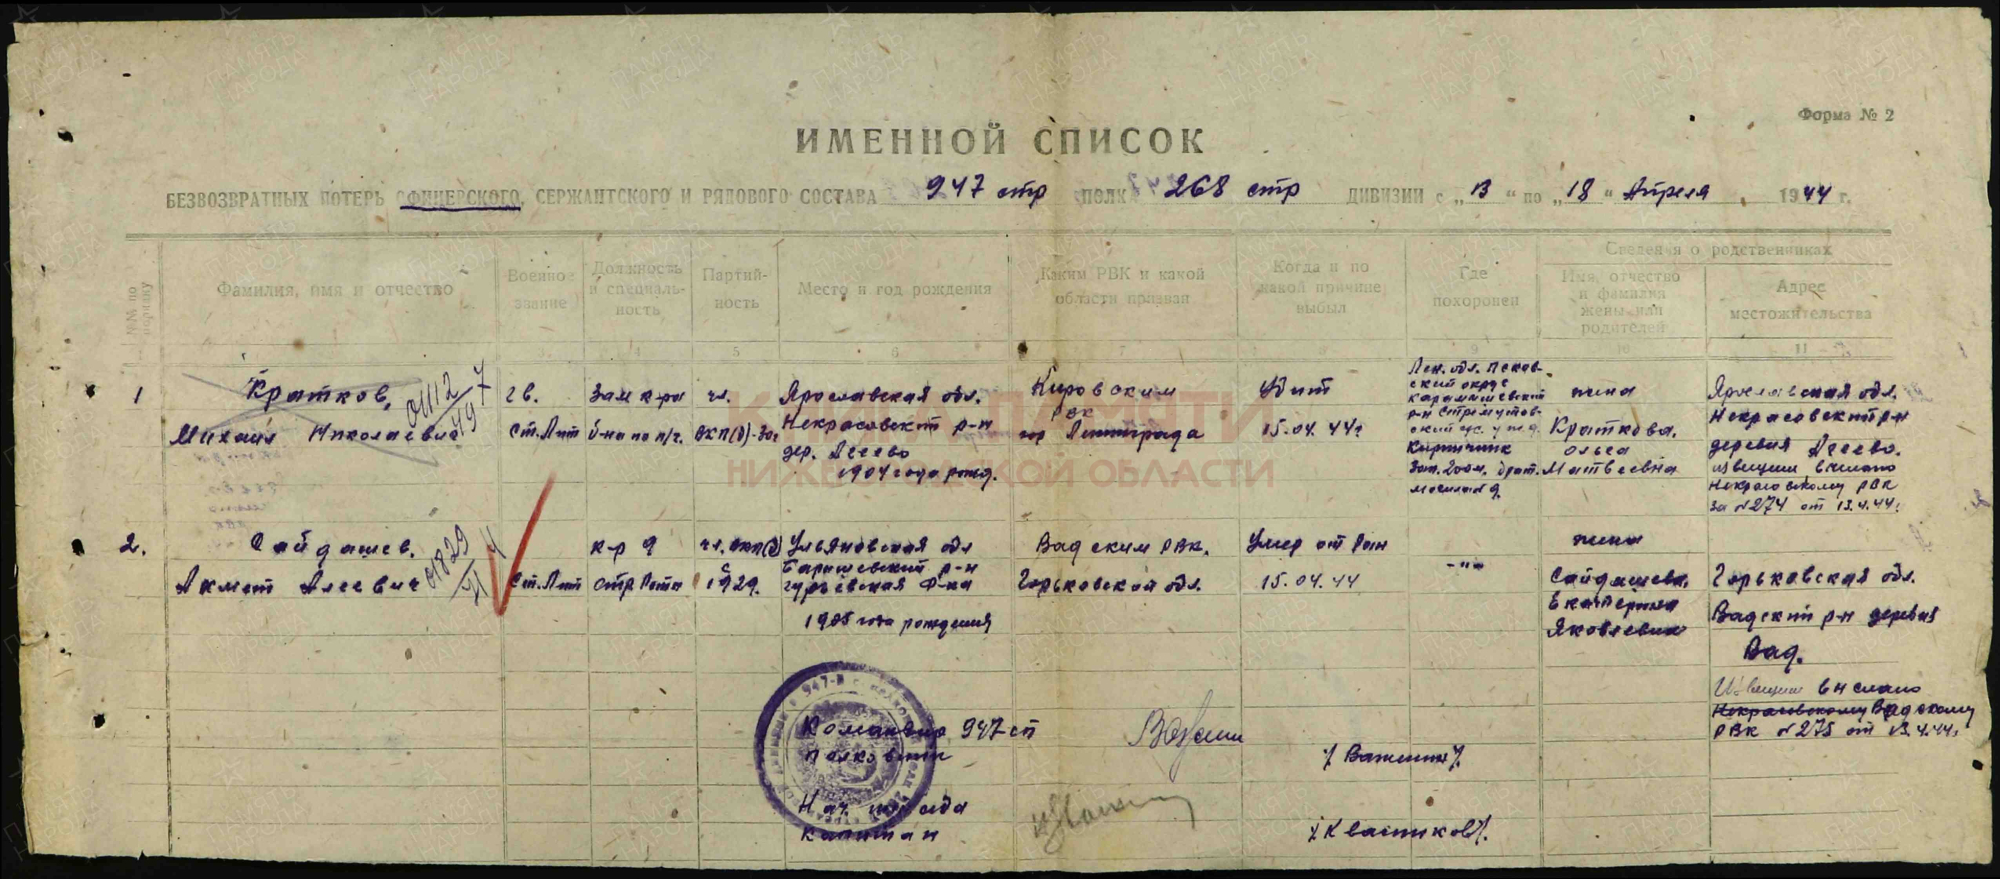 Форма № 2
ИМЕННОЙ СПИСОК
БЕЗВОЗВРАТНЫХ ПОТЕРЬ ОФИЦЕРСКОГО, СЕРЖАНТСКОГО И РЯДОВОГО СОСТАВА 947 стр ПОЛК 268 стр ДИВИЗИИ с „13 “ по „18 “ Апреля 1944 г.
№№ по порядку
Фамилия, имя и отчество
Военное звание
Должность и специальность
Партийность
Место и год рождения
Каким РВК и какой области призван
Когда и по какой причине выбыл
Где похоронен
Сведения о родственниках
Имя, отчество и фамилия жены или родителей
Адрес местожительства
4 5 6 7 9 10 11
1
Кратков,
Михаил Николаевич
гв.
Ст. Лит
Зам к-ра
б-на по п/ч.
чл.
ВКП(б)-30г
Ярославская обл.
Некрасовский р-н
дер. Агеево
1904 года рожд.
Кировским
РВК
гор Ленинграда
Убит
15.04.44г
Лен. обл. Псков-
ский округ
Карамышевский
р-н Стремутов-
ский
Кирпичник
Зап. 200 м. брат.
могила
жена
Краткова.
Ольга
Матвеевна
Ярославская обл.
Некрасовский р-н
деревня Агеево.
извещение выслано
Некрасовскому РВК
за №274 от 13.4.44г
2.
Сайдашев.
Ахмет Алеевич
Ст. Лит
к-р
стр Роты
чл. ВКП(б)
с
1929.
Ульяновская обл
Барышевский р-н
Гурьевская ф-ка
1905 года рождения
Вадским РВК.
Горьковской обл.
Умер от Ран
15.04.44
-"-
жена
Сайдашева.
Екатерина
Яковлевна
Горьковская обл.
Вадский р-н деревня
Вад.
Извещение выслано
Некрасовскому Вадскому
РВК №275 от 13.4.44г
Командир 947 сп
полковник
/Важенин/.
Нач. штаба
капитан
/Квасников/.
КНИГА ПАМЯТИ
НИЖЕГОРОДСКОЙ ОБЛАСТИ
ПАМЯТЬ НАРОДА